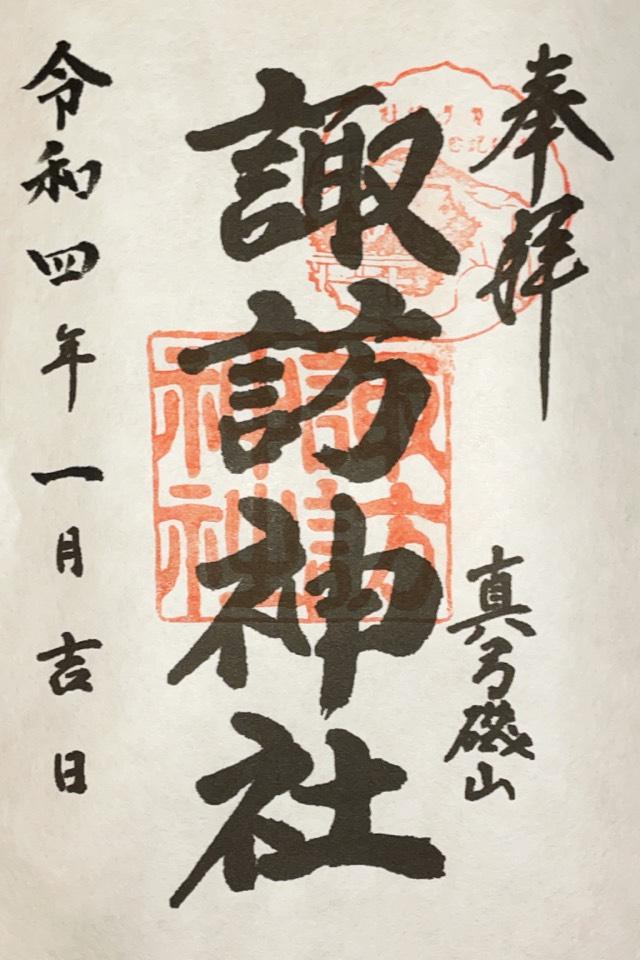 奉拝
真弓磯山
諏訪神社
令和四年一月吉日